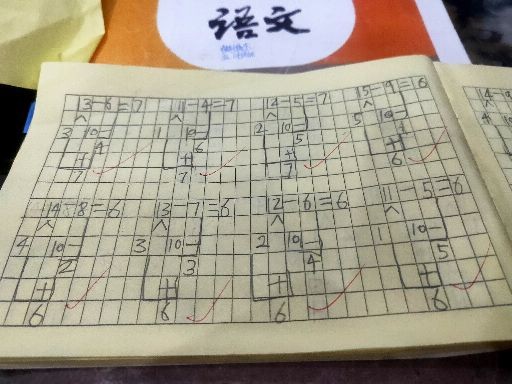 语文
13-6=7 11-4=7 12-5=7 15-9=6 14-9
3 10 1 10 2 10 5 10 4 10
4 6 5 1
+ + + +
7 7 7 6
14-8=6 13-7=6 12-6=6 11-5=6
4 10 3 10 2 10 1 10
2 3 4 5
+ + + +
6 6 6 6